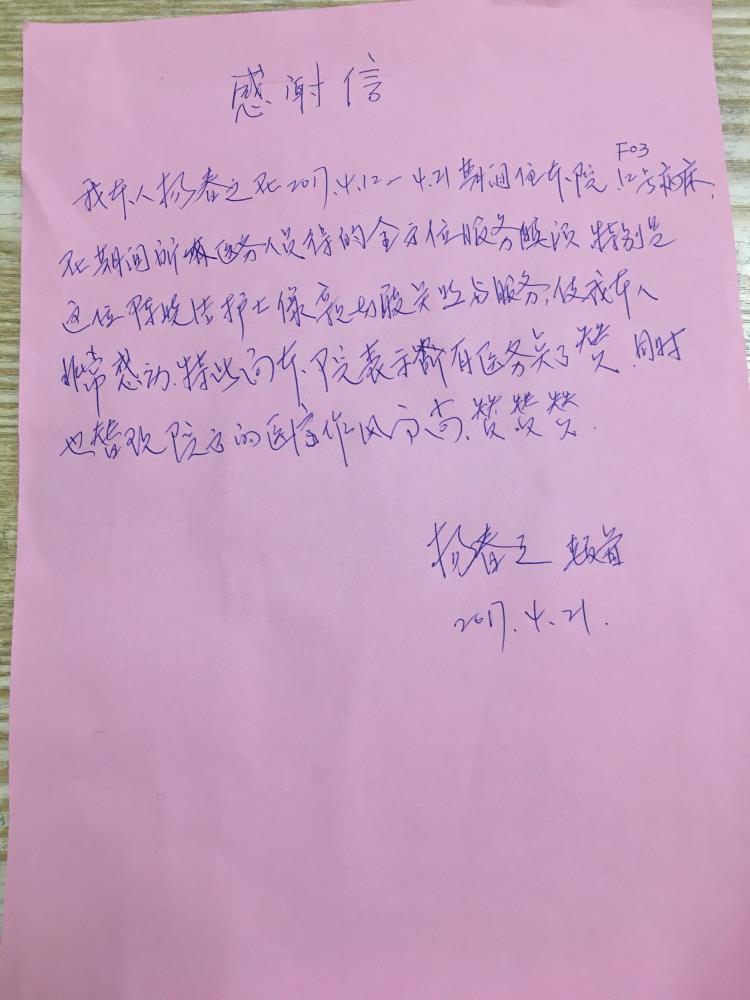 感谢信
我本人杨春立在2017.4.12-4.21期间住本院F03 12号病床,
在期间所 医务人员得的全方位服务 特别是
这位陈晓洁护士像亲切般关照与服务,使我本人
非常感动.特此向本院表示所有医务 了赞.同时
也替观院方的医疗作风高尚,赞赞赞.
杨春立 顿首
2017.4.21.